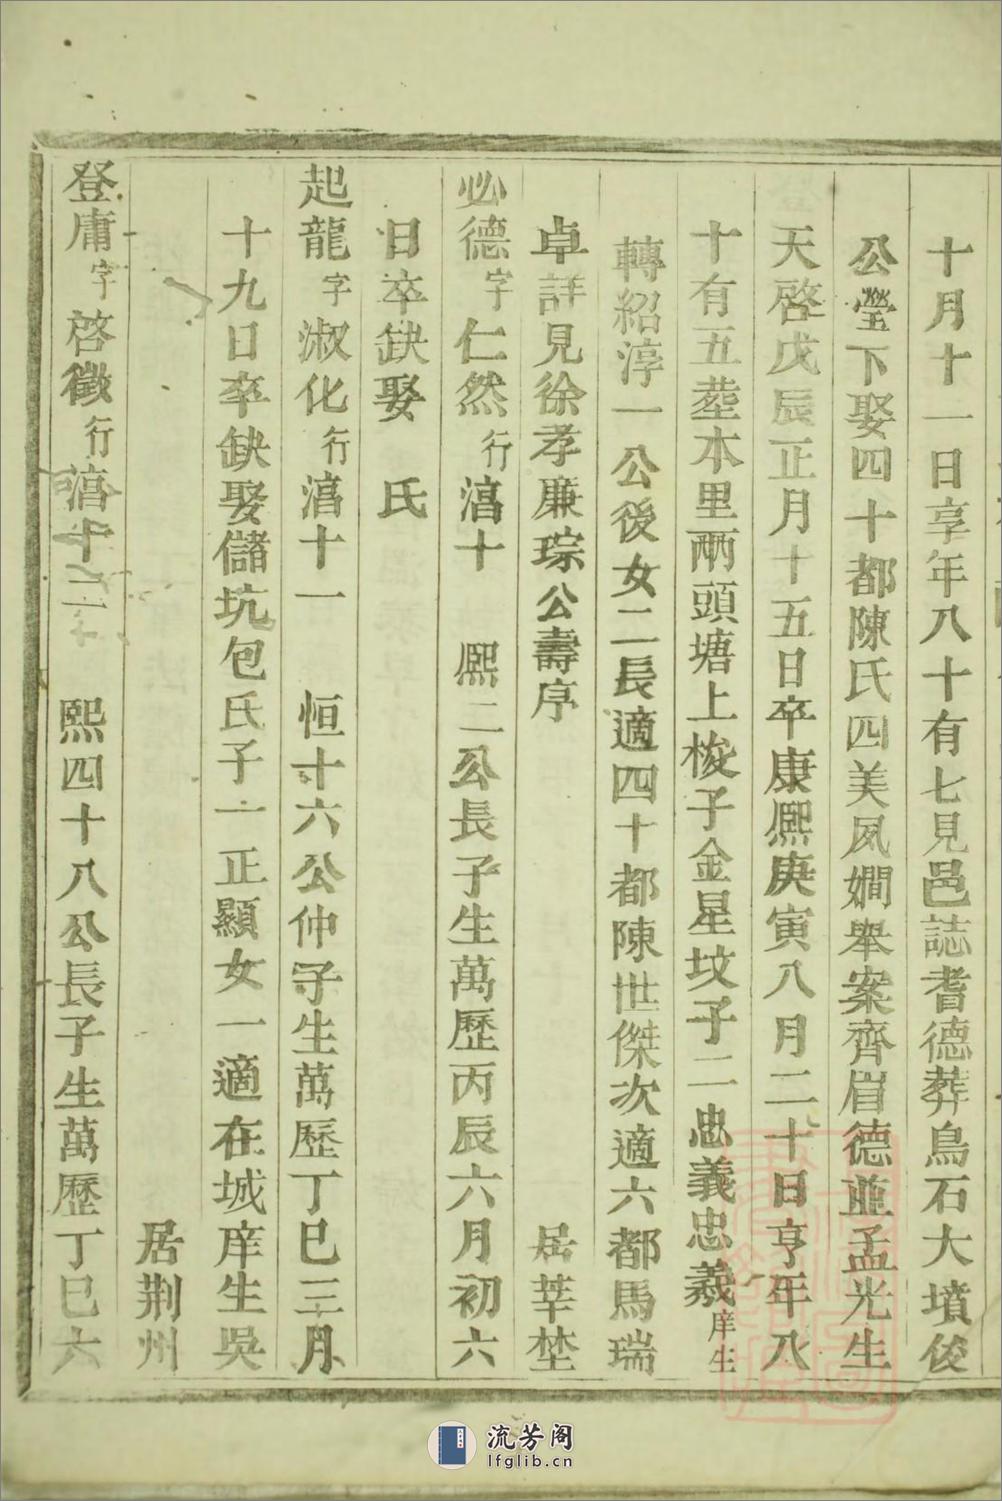 十月十一日享年八十有七見邑誌耆德葬鳥石大墳後
公瑩下娶四十都陳氏四美夙嫺舉案齊眉德並孟光生
天啓戊辰正月十五日卒康熙庚寅八月二十日亨年八
十有五塟本里兩頭塘上梭子金星坟子二忠義忠羲庠生
轉紹淳一公後女二長適四十都陳世傑次適六都馬瑞
卓詳見徐孝廉琮公壽序 居莘埜
必德字仁然行滈十 熙二公長子生萬歷丙辰六月初六
日卒缺娶 氏
起龍字淑化行滈十一 恒十六公仲子生萬歷丁巳三月
十九日卒缺娶儲坑包氏子一正顯女一適在城庠生吳
居荆州
登庸字啓徵行滈十二 熙四十八公長子生萬歷丁巳六
流芳阁
lfglib.cn